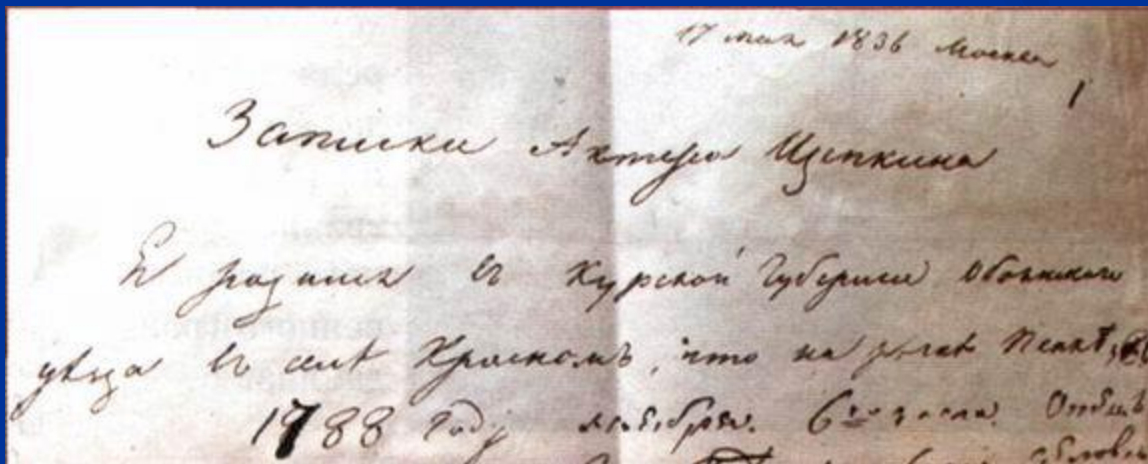 17 мая 1836 Москва
1
Записки Актера Щепкина
Я родился въ Курской Губернии Обоянскаго
уѣзда въ селѣ Красномъ, что на рѣчкѣ Пенкѣ, въ
1788 Году ноября 6го числа. Отецъ